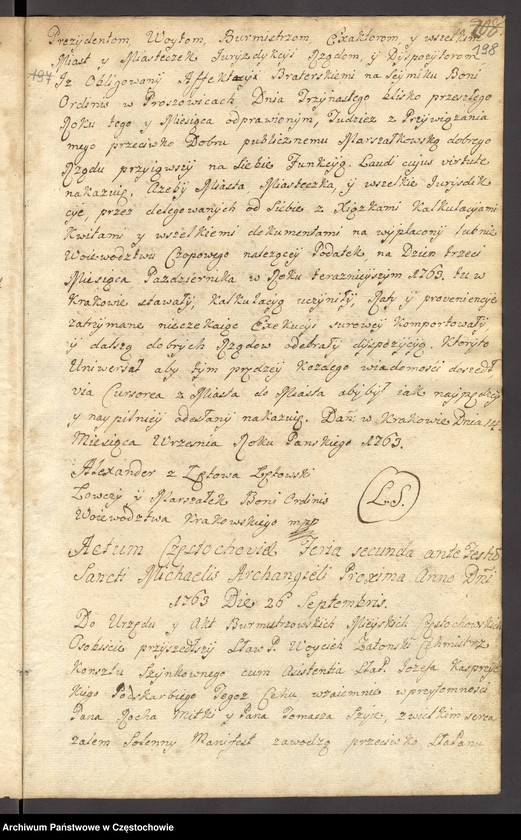 198
197
Prezydentom, Woytom, Burmistrzom, Exaktorom, y wszelkim
Miast y Miasteczek Juryzdykcyi Rządom, y Dyspozytorom
Iż Obligowany Affektacyą Braterskiemi na Seymiku Boni
Ordinis w Proszowicach Dnia Trzynastego blisko przeszłego
Roku tego y Miesiąca odprawionym, Tudzież z Przywiązania
mego przeciwko Dobru publicznemu Marszałkowską dobrego
Rządu przyiąwszy na Siebie Funkcyią. Laudi cujus virtute
nakazuię, Ażeby Miasta, Miasteczka, y wszelkie Jurysdik
cye, przez delegowanych od Siebie z Xiążkami Kalkulacyami
Kwitami y wszelkiemi dokumentami na wypłacony lubnie
Woiewodztwu Czopowego należący Podatek, na Dzień trzeci
Miesiąca Pazdziernika w Roku teraznieyszym 1763. tu w
Krakowie stawały, Kalkulacyą uczyniły, Raty y proveniencye
zatrzymane nieczekaiąc Exekucyi surowey Komportowały
y dalszą dobrych Rządow odebrały dyspozycyią. Ktoryto
Uniwersał aby tym prędzey Kożdego wiadomości doszedł
via Cursorea z Miasta do Miasta abybył iak nayprędzey
y naypilniey odesłany nakazuię. Dań: w Krakowie Dnia 14.
Miesiąca Wrzesnia Roku Panskiego 1763.
Alexander z Łętowa Łętowski
Łowczy y Marszałek Boni Ordinis
Woiewodztwa Krakowskiego mpp
L.S.
Actum Częstochoviæ Feria secunda ante Festū
Sancti Michaelis Archangeli Proxima Anno Dñi
1763 Die 26 Septembris.
Do Urzędu y Akt Burmistrzowskich Mieyskich Częstochowskich
Osobiscie przyszedłszy Sław P. Woyciech Zatonski Cehmistrz
Konsztu Szynkownego cum Asistentia Sław. Jozefa Kasprzyc
kiego Podskarbiego Tegoż Cehu, wzaiemnie wprzytomności
Pana Rocha Mitki y Pana Tomasza Szyic, zwielkim serca
żalem Solenny Manifest zawodzą przeciwko Sła Panu
Archiwum Państwowe w Częstochowie